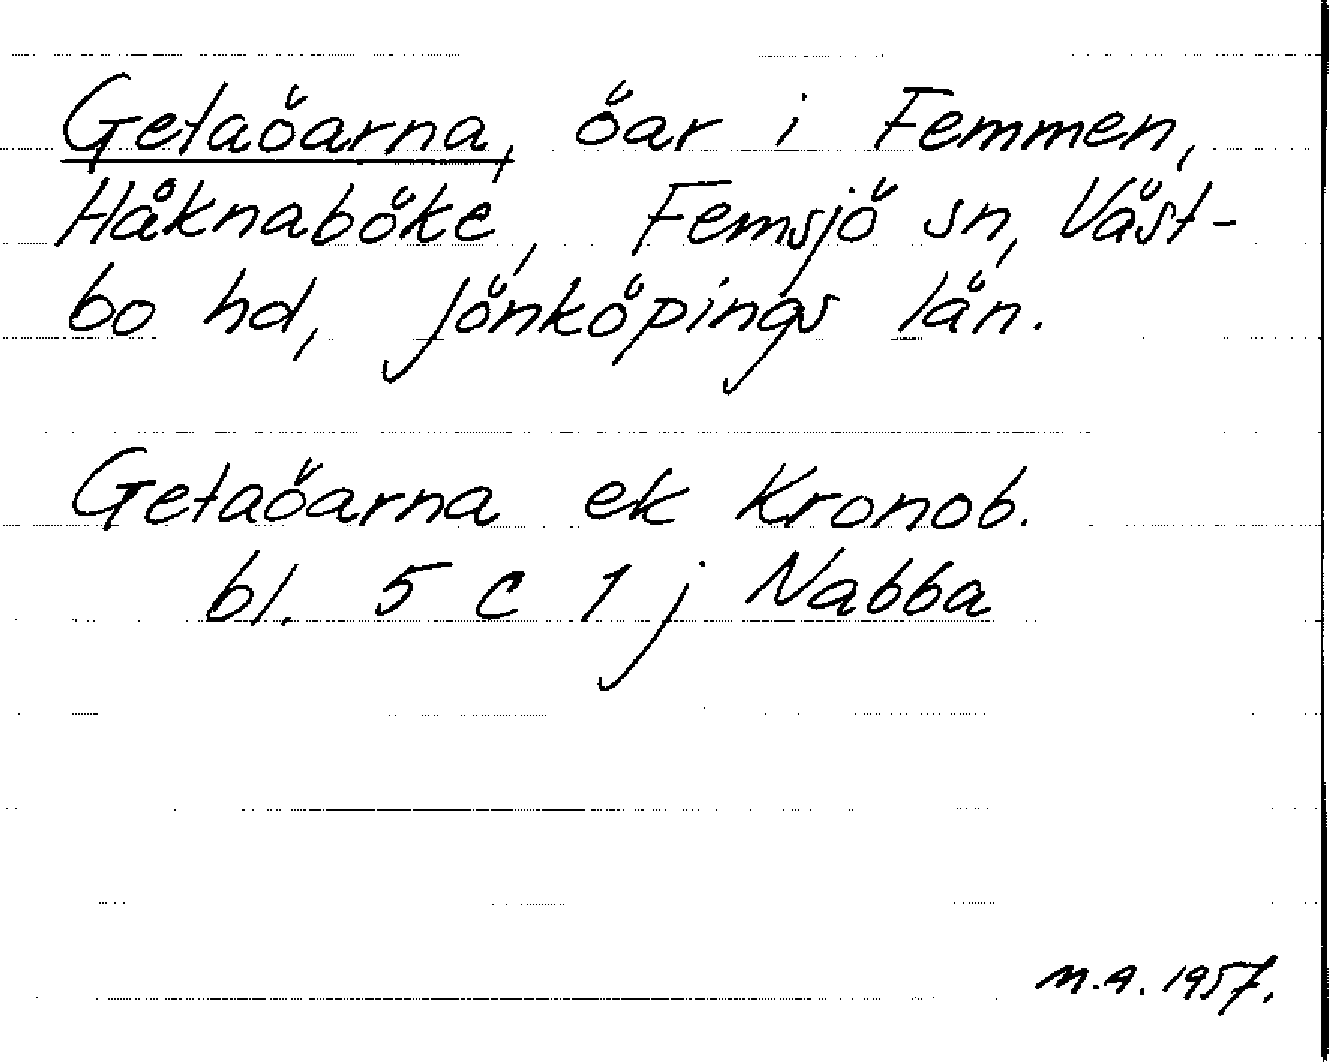 Getaöarna, öar i Femmen,
Håknaböke, Femsjö sn, Väst-
bo hd, Jönköpings län.
Getaöarna ek Kronob.
bl. 5 C 1 j Nabba
M.A. 1957.